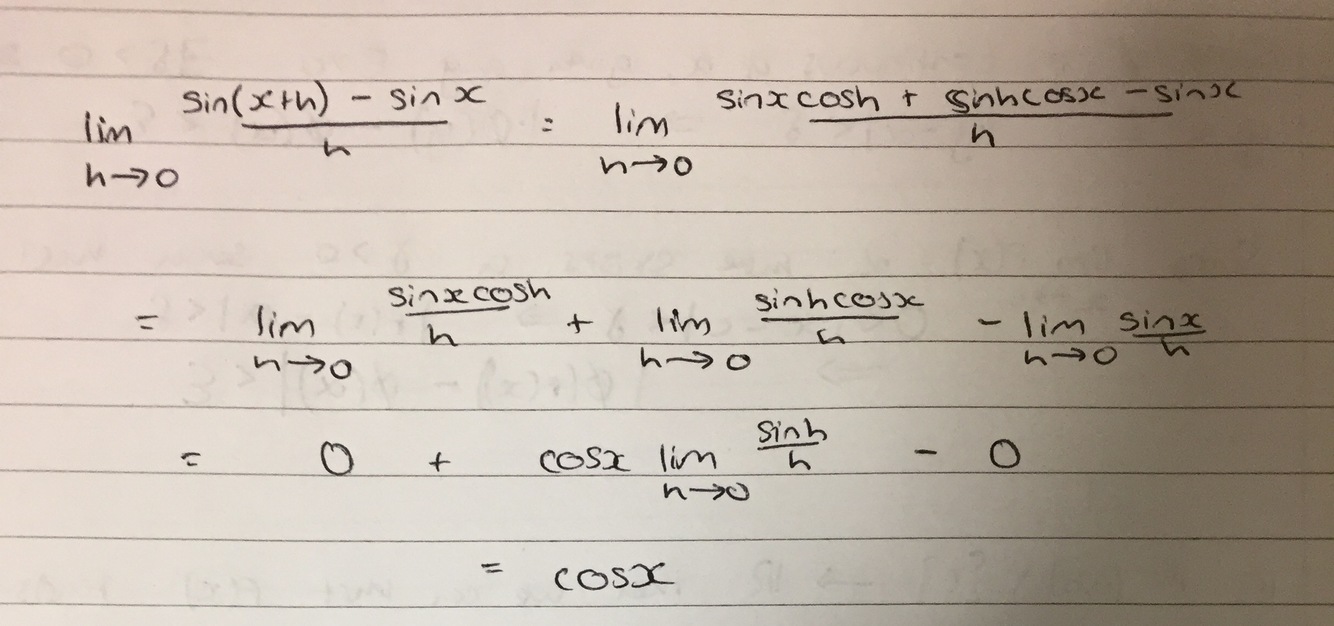 lim h→0 (sin(x+h) - sin x)/h = lim h→0 (sinxcosh + sinhcosx - sinx)/h
= lim h→0 (sinxcosh)/h + lim h→0 (sinhcosx)/h - lim h→0 (sinx)/h
= 0 + cosx lim h→0 (sinh)/h - 0
= cosx